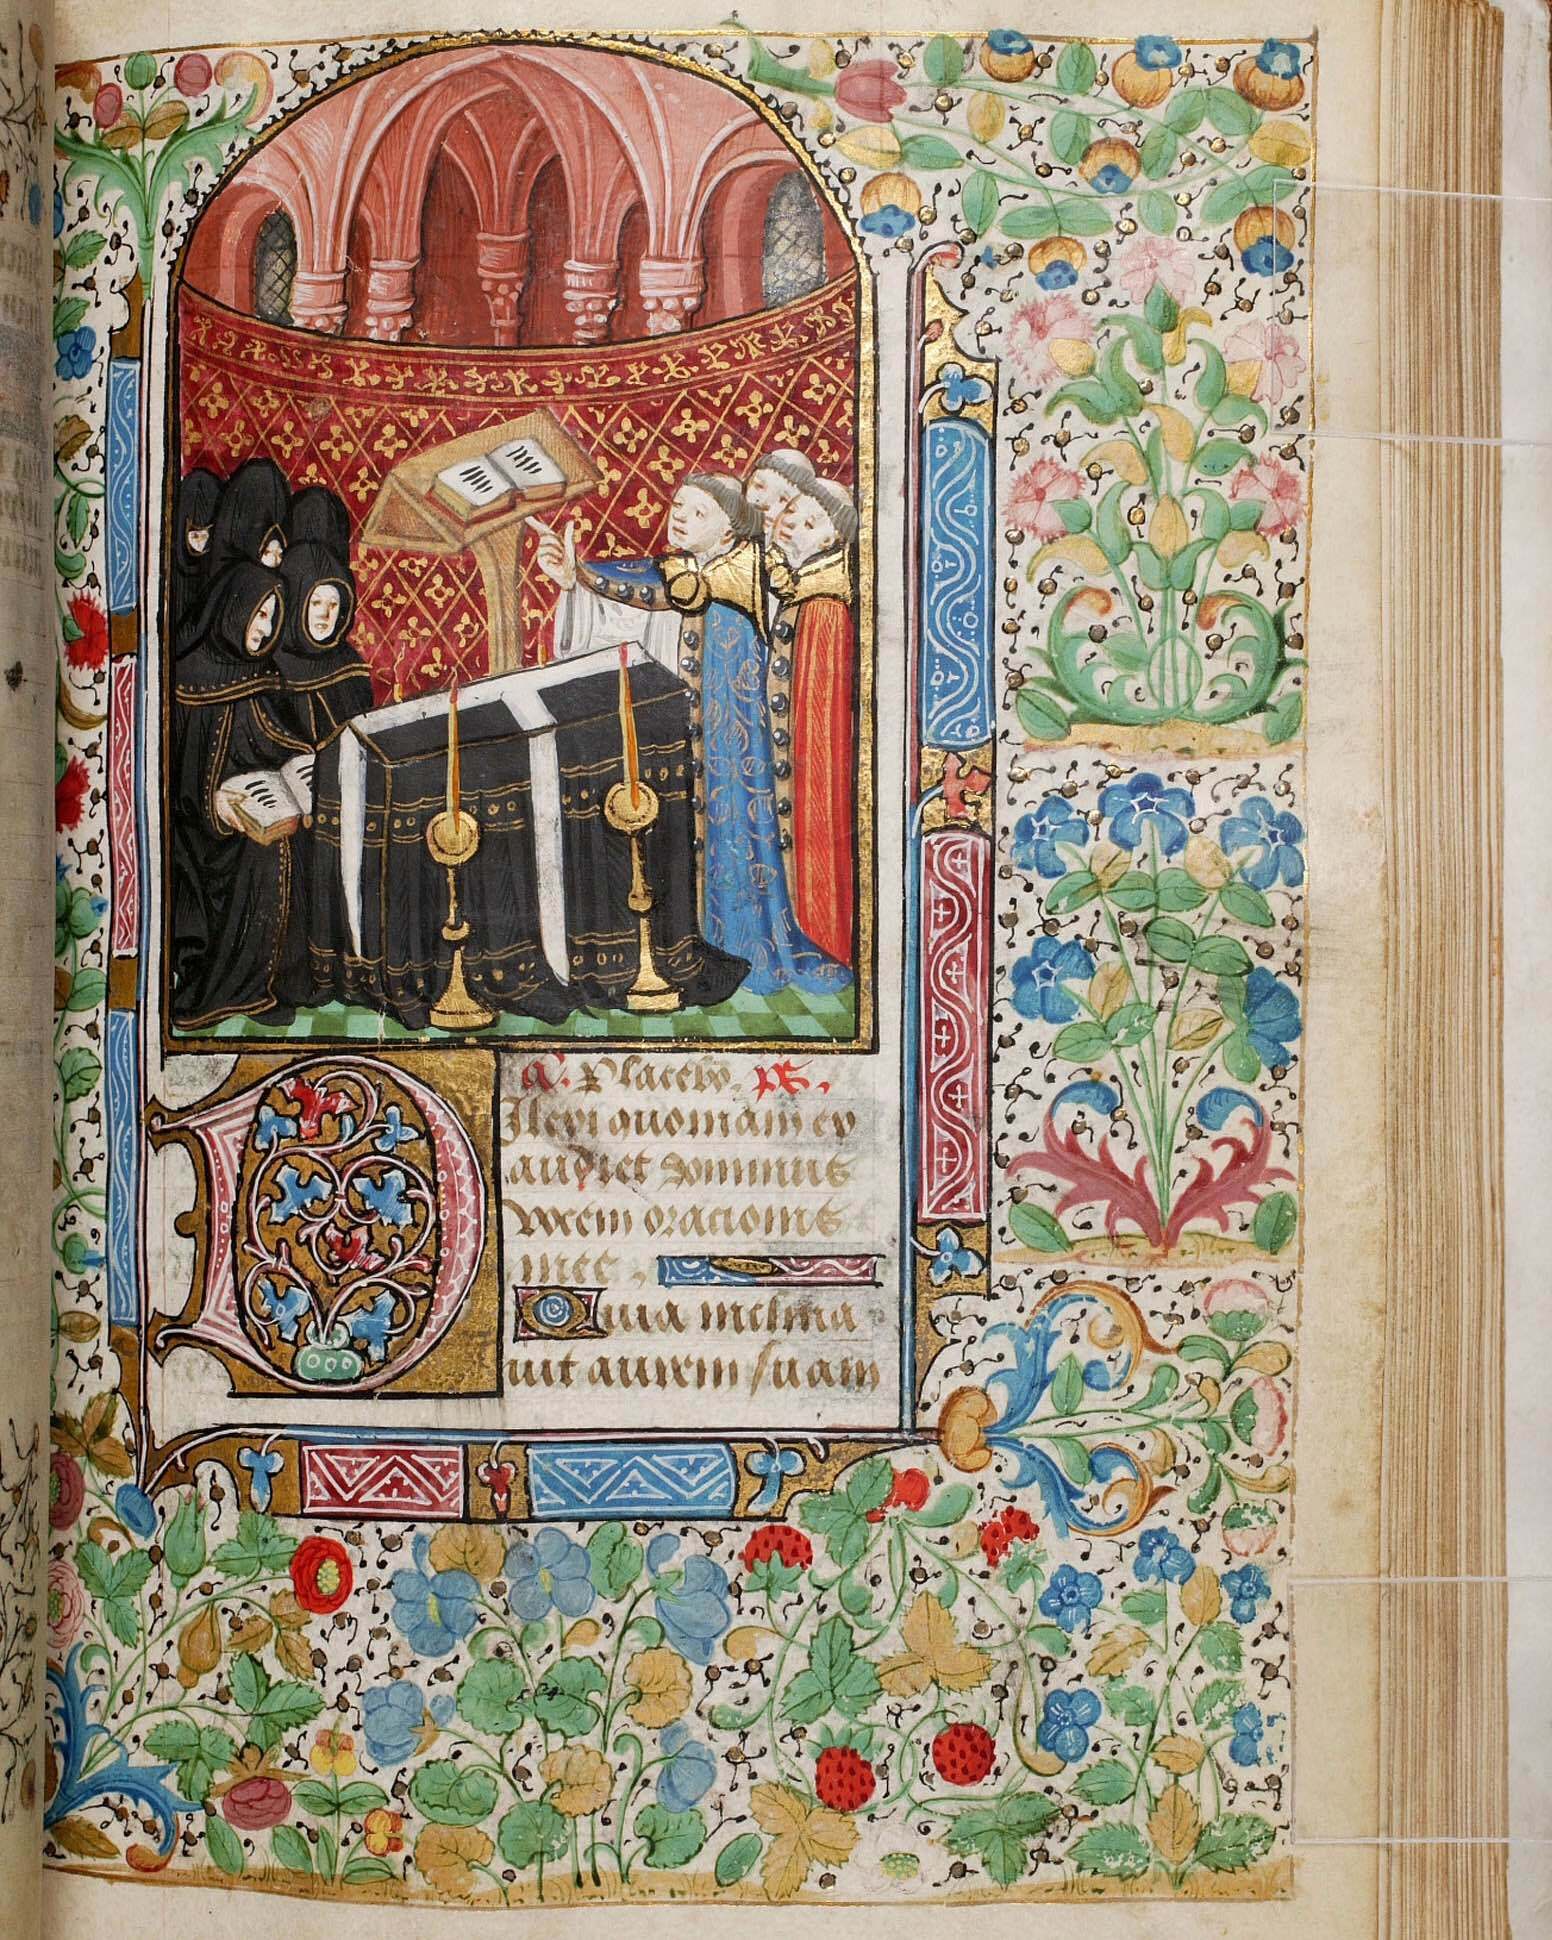 A. Placebo. ps.
Dilexi quoniam ex
audiet dominus
vocem orationis
mee.
Quia inclina
uit aurem suam